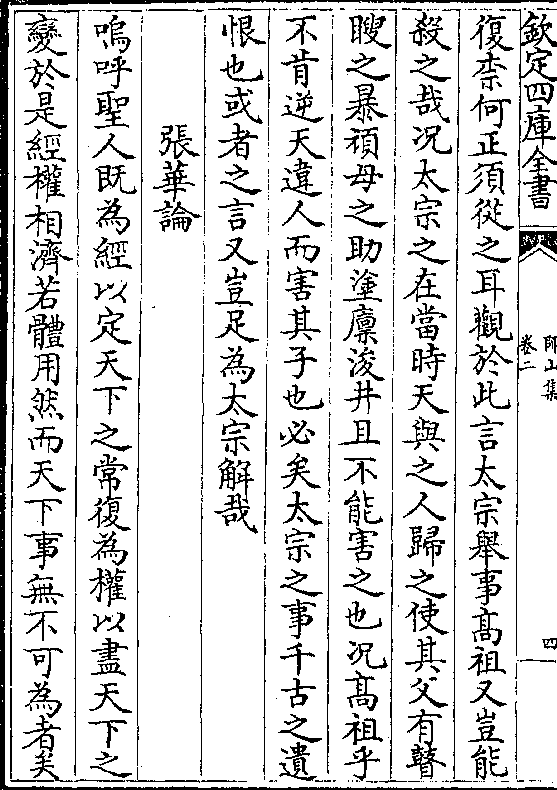 欽定四庫全書
師山集
卷二
四
復柰何正須從之耳觀於此言太宗舉事髙祖又豈能
殺之哉况太宗之在當時天與之人歸之使其父有瞽
瞍之暴頑母之助塗廪浚井且不能害之也况髙祖乎
不肯逆天違人而害其子也必矣太宗之事千古之遺
恨也或者之言又豈足為太宗解哉
張華論
嗚呼聖人既為經以定天下之常復為權以盡天下之
變於是經權相濟若體用然而天下事無不可為者矣